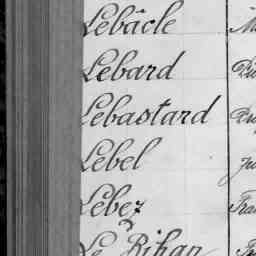 Lebâcle
Lebard
Lebastard
Lebel
Lebez
Le Bihan